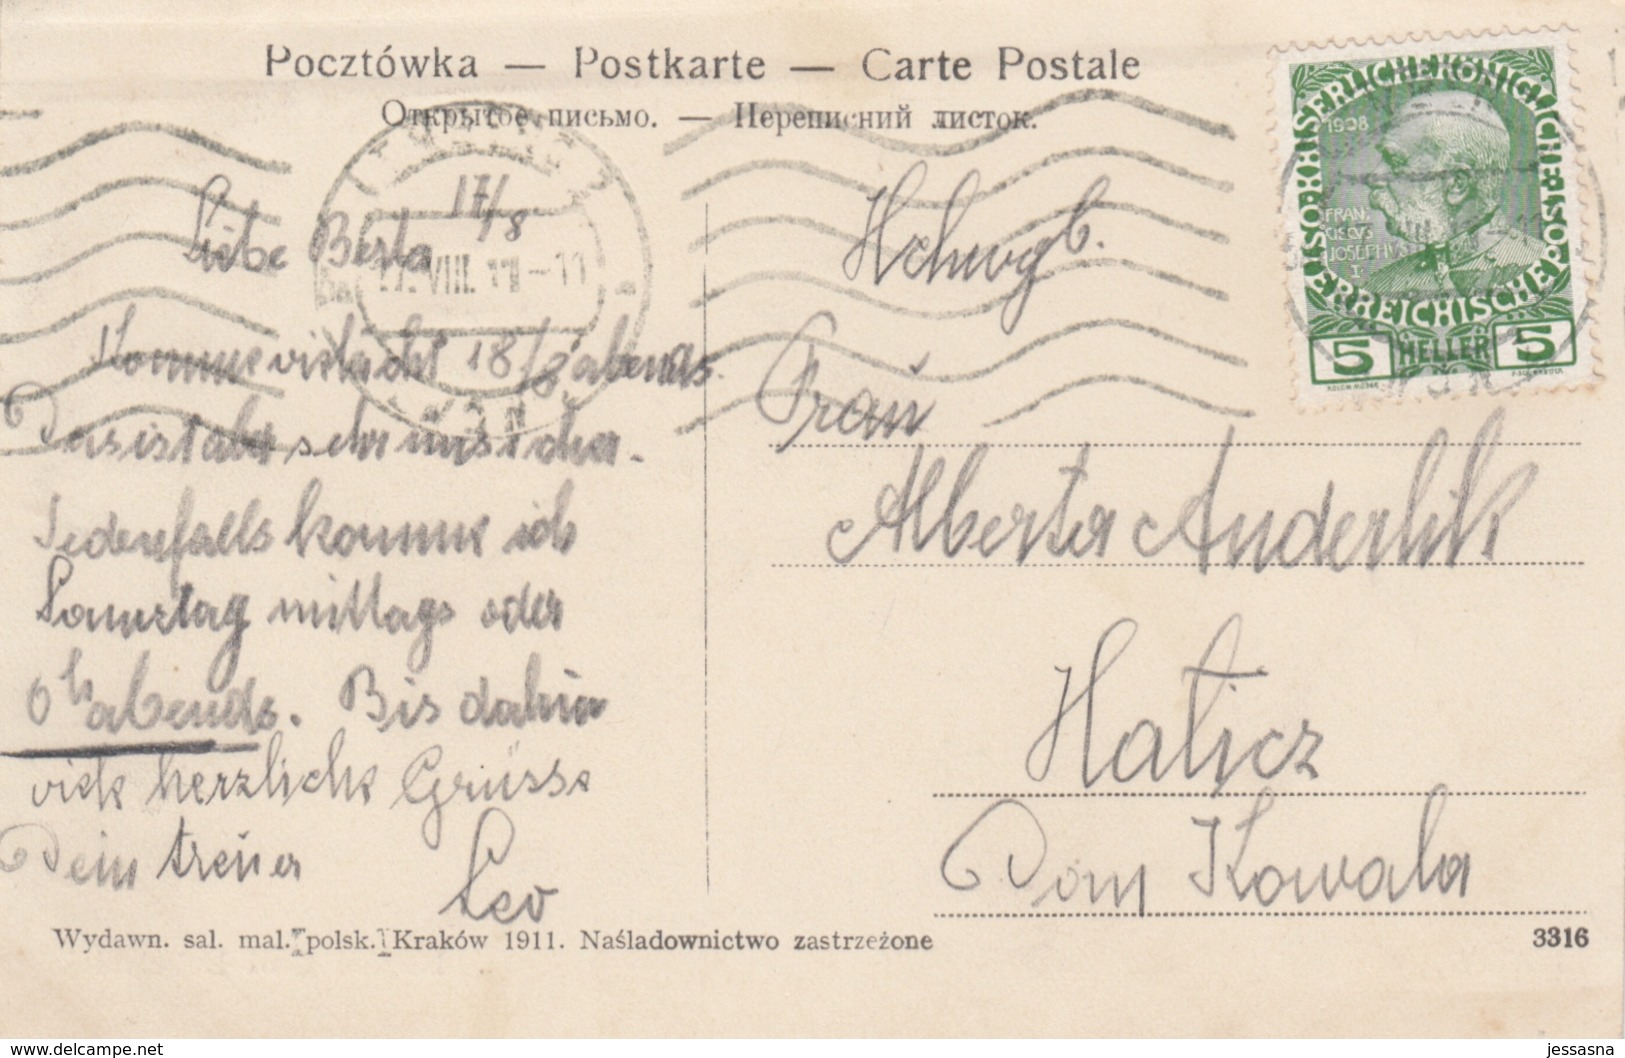 Pocztówka — Postkarte — Carte Postale
Открытое письмо. — Переписний листок.
17/8
Liebe Berta
17. VIII. 11-11
Komme vielleicht 18/8 abends.
Das ist aber sehr unsicher.
Jedenfalls komme ich
Samstag mittags oder
6h abends. Bis dahin
viele herzliche Grüsse
Dein treuer
Leo
Hchwgb.
Frau
Alberta Anderlik
Halicz
Dom Kowala
KAISERLICHE KÖNIGLICHE
ÖSTERREICHISCHE POST
1908
FRAN
CISCVS
JOSEPHVS
I
5 HELLER 5
Wydawn. sal. mal. polsk. Kraków 1911. Naśladownictwo zastrzeżone
3316
www.delcampe.net
jessasna